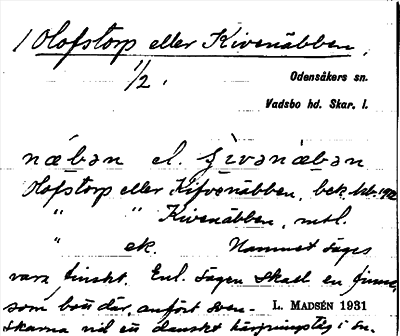 1 Olofstorp eller Kivenäbben,
1/2.
Odensåkers sn.
Vadsbo hd. Skar. l.
näban el.
Olofstorp eller Kifvenäbben, bek.
" " Kivenäbben, mtl.
" ek. Namnet säges
vara finskt. Enl. sägen skall en
som bott där, anfört
L. MADSÉN 1931
skarna vid ett danskt härjningståg i